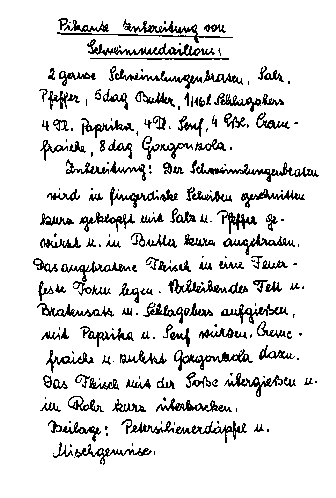 Pikante Zubereitung von
Schweinmedaillons:
2 ganze Schweinslungenbraten, Salz,
Pfeffer, 5 dag Butter, 1/16 l Schlagobers
4 Tl. Paprika, 4 Tl. Senf, 4 Eßl. Creme-
fraiche, 8 dag Gorgonzola.
Zubereitung: Der Schweinslungenbraten
wird in fingerdicke Scheiben geschnitten
kurz geklopft mit Salz u. Pfeffer ge-
würzt u. in Butter kurz angebraten.
Das angebratene Fleisch in eine Feuer-
feste Form legen. Fett u.
Bratensatz m. Schlagobers aufgießen,
mit Paprika u. Senf würzen. Creme-
fraiche u. zuletzt Gorgonzola dazu.
Das Fleisch mit der Soße übergießen u.
im Rohr kurz überbacken.
Beilage: Petersilienerdäpfel u.
Mischgemüse.